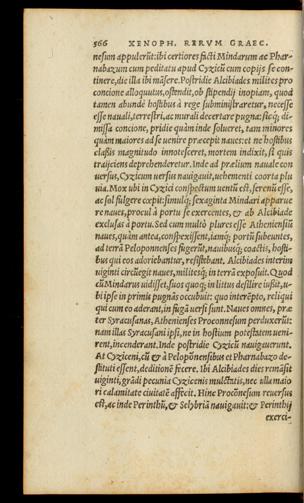 566 XENOPH. RERVM GRAEC.
nesum appulerūt: ibi certiores facti Mindarum ac Phar-
nabazum cum peditatu apud Cyzicū cum copijs se con-
tinere, die illa ibi māsere. Postridie Alcibiades milites pro
concione alloquutus, ostendit, ob stipendij inopiam, quod
tamen abundè hostibus à rege subministraretur, necesse
esse nauali, terrestri, ac murali decertare pugna: sicq; di-
missa concione, pridie quàm inde solueret, tam minores
quàm maiores ad se uenire præcepit naues: et ne hostibus
classis magnitudo innotesceret, mortem indixit, si quis
traijciens deprehenderetur. Inde ad prælium nauale con
uersus, Cyzicum uersus nauigauit, uehementi coorta plu
uia. Mox ubi in Cyzici conspectum uentū est, serenū esse,
ac sol fulgere cœpit: simulq; sexaginta Mindari apparue
re naues, procul à portu se exercentes, & ab Alcibiade
exclusas à portu. Sed cum multò plures esse Atheniensiū
naues, quàm antea, conspexissent, iamq; portū subeuntes,
ad terrā Peloponnenses fugerūt, nauibusq; coactis, hosti-
bus qui eos adoriebantur, resistebant. Alcibiades interim
uiginti circūegit naues, militesq; in terrā exposuit. Quod
cū Mindarus uidisset, suos quoq; in littus desilire iussit, u-
bi ipse in primis pugnās occubuit: quo interēpto, reliqui
qui cum eo aderant, in fugā uersi sunt. Naues omnes, præ-
ter Syracusanas, Athenienses Proconnesum perduxerūt:
nam illas Syracusani ipsi, ne in hostium potestatem ueni-
rent, incenderant. Inde postridie Cyzicū nauigauerunt.
At Cyziceni, cū & à Pelopōnensibus et Pharnabazo de-
stituti essent, deditionē fecere. Ibi Alcibiades dies remāsit
uiginti, grādi pecunia Cyzicenis mulctatis, nec ulla maio
ri calamitate ciuitatē affecit. Hinc Procōnesum reuersus
est, ac inde Perinthū, & Selybriā nauigauit: & Perinthij
exerci-